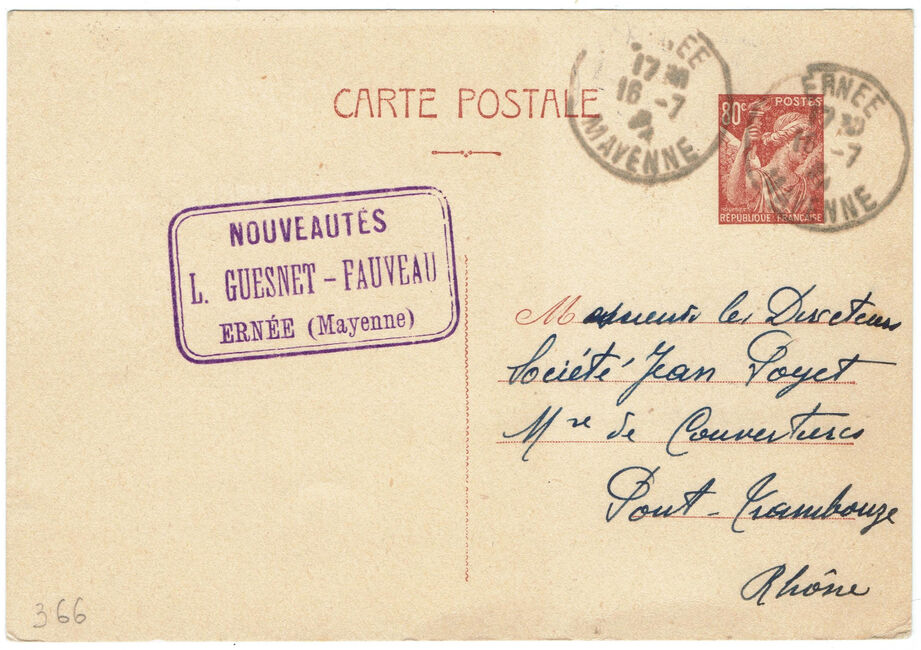 CARTE POSTALE
ERNEE
17 30
16 -7
MAYENNE
80c POSTES
RÉPUBLIQUE FRANÇAISE
ERNEE
17 30
16 -7
MAYENNE
NOUVEAUTÉS
L. GUESNET - FAUVEAU
ERNÉE (Mayenne)
Monsieur le Directeur
Société Jean Poyet
Mre de Couvertures
Pont-Trambouze
Rhône
366